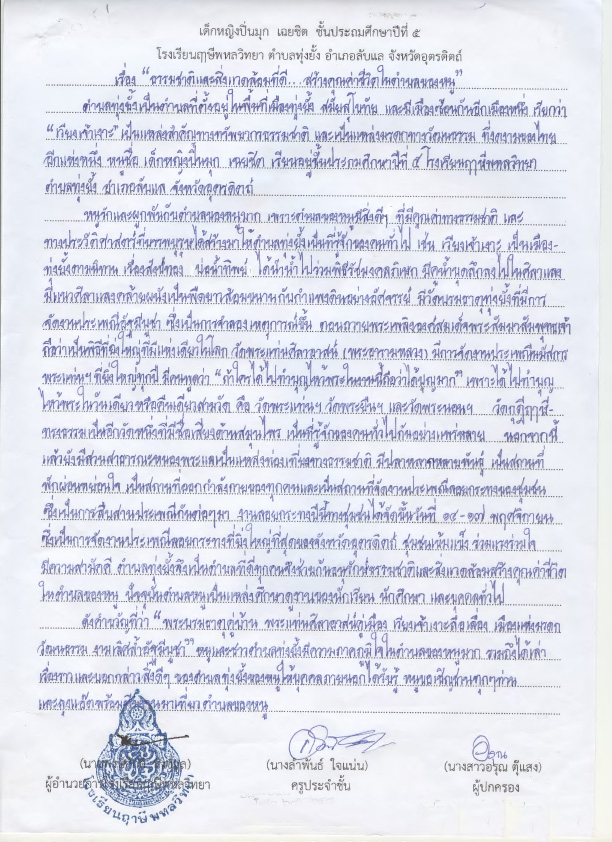 เด็กหญิงปิ่นมุก เฉยชิต ชั้นประถมศึกษาปีที่ ๕
โรงเรียนฤๅษีพหลวิทยา ตำบลทุ่งยั้ง อำเภอลับแล จังหวัดอุตรดิตถ์
เรื่อง “ธรรมชาติและสิ่งแวดล้อมที่ดี... สร้างคุณค่าชีวิตในตำบลของหนู”
ตำบลทุ่งยั้งเป็นตำบลที่ตั้งอยู่ในพื้นที่เมืองทุ่งยั้ง สมัยสุโขทัย และมีเมืองซ้อนกันอีกเมืองหนึ่ง เรียกว่า
“เวียงเจ้าเงาะ” เป็นแหล่งสำคัญทางทรัพยากรธรรมชาติ และเป็นแหล่งมรดกทางวัฒนธรรม ที่งดงามของไทย
อีกแห่งหนึ่ง หนูชื่อ เด็กหญิงปิ่นมุก เฉยชิต เรียนอยู่ชั้นประถมศึกษาปีที่ ๕ โรงเรียนฤๅษีพหลวิทยา
ตำบลทุ่งยั้ง อำเภอลับแล จังหวัดอุตรดิตถ์
หนูรักและผูกพันกับตำบลของหนูมาก เพราะตำบลของหนูมีสิ่งดีๆ ที่มีคุณค่าทางธรรมชาติ และ
ทางประวัติศาสตร์ที่บรรพบุรุษได้สร้างมาให้ตำบลทุ่งยั้งเป็นที่รู้จักของคนทั่วไป เช่น เวียงเจ้าเงาะ เป็นเมือง-
ทุ่งยั้งตามนิทาน เรื่องสังข์ทอง บ่อน้ำทิพย์ ได้นำน้ำไปร่วมพิธีรัชมงคลภิเษก มีคูน้ำขุดลึกลงไปในศิลาแลง
มีแนวศิลาแลงคล้ายผนังเป็นพืดยาวล้อมขนานกับกำแพงดินอย่างอัศจรรย์ มีวัดบรมธาตุทุ่งยั้งที่มีการ
จัดงานประเพณีอัฐมีบูชา ซึ่งเป็นการจำลองเหตุการณ์ขึ้น ตอนถวายพระเพลิงองค์สมเด็จพระสัมมาสัมพุทธเจ้า
ถือว่าเป็นพิธีที่ยิ่งใหญ่ที่มีแห่งเดียวในโลก วัดพระแท่นศิลาอาสน์ (พระอารามหลวง) มีการจัดงานประเพณีนมัสการ
พระแท่นฯ ที่ยิ่งใหญ่ทุกปี มีคนพูดว่า “ถ้าใครได้ไปทำบุญไหว้พระในงานนี้ถือว่าได้บุญมาก” เพราะได้ไปทำบุญ
ไหว้พระในวันเดียวหรือคืนเดียวสามวัด คือ วัดพระแท่นฯ วัดพระยืนฯ และวัดพระนอนฯ วัดกุฎีฤๅษี-
ทรงธรรมเป็นอีกวัดหนึ่งที่มีชื่อเสียงด้านสมุนไพร เป็นที่รู้จักของคนทั่วไปกันอย่างแพร่หลาย นอกจากนี้
แล้วยังมีสวนสาธารณะหนองพระแลเป็นแหล่งท่องเที่ยวทางธรรมชาติ มีปลาหลากหลายพันธุ์ เป็นสถานที่
พักผ่อนหย่อนใจ เป็นสถานที่ออกกำลังกายของทุกคนและเป็นสถานที่จัดงานประเพณีลอยกระทงของชุมชน
ซึ่งเป็นการสืบสานประเพณีกันต่อๆมา งานลอยกระทงปีนี้ทางชุมชนได้จัดขึ้นวันที่ ๑๔-๑๗ พฤศจิกายน
ซึ่งเป็นการจัดงานประเพณีลอยกระทงที่ยิ่งใหญ่ที่สุดของจังหวัดอุตรดิตถ์ ชุมชนเข้มแข็ง ร่วมแรงร่วมใจ
มีความสามัคคี ตำบลทุ่งยั้งจึงเป็นตำบลที่ดีทุกคนจึงช่วยกันอนุรักษ์ธรรมชาติและสิ่งแวดล้อมสร้างคุณค่าชีวิต
ในตำบลของหนู ปัจจุบันตำบลหนูเป็นแหล่งศึกษาดูงานของนักเรียน นักศึกษา และบุคคลทั่วไป
ดังคำขวัญที่ว่า “พระบรมธาตุคู่บ้าน พระแท่นศิลาอาสน์คู่เมือง เวียงเจ้าเงาะลือเลื่อง เมืองแห่งมรดก
วัฒนธรรม งามเลิศล้ำอัฐมีบูชา” หนูและชาวตำบลทุ่งยั้งมีความภาคภูมิใจในตำบลของหนูมาก รวมถึงได้เล่า
เรื่องราวและบอกกล่าวสิ่งดีๆ ของตำบลทุ่งยั้งของหนูให้บุคคลภายนอกได้รับรู้ หนูขอเชิญชวนทุกๆท่าน
มาเที่ยวตำบลของหนู
(นางลำพันธ์ ใจแน่น)
(นางสาวอรุณ ตุ๊แสง)
ครูประจำชั้น
ผู้ปกครอง
โรงเรียนฤๅษีพหลวิทยา